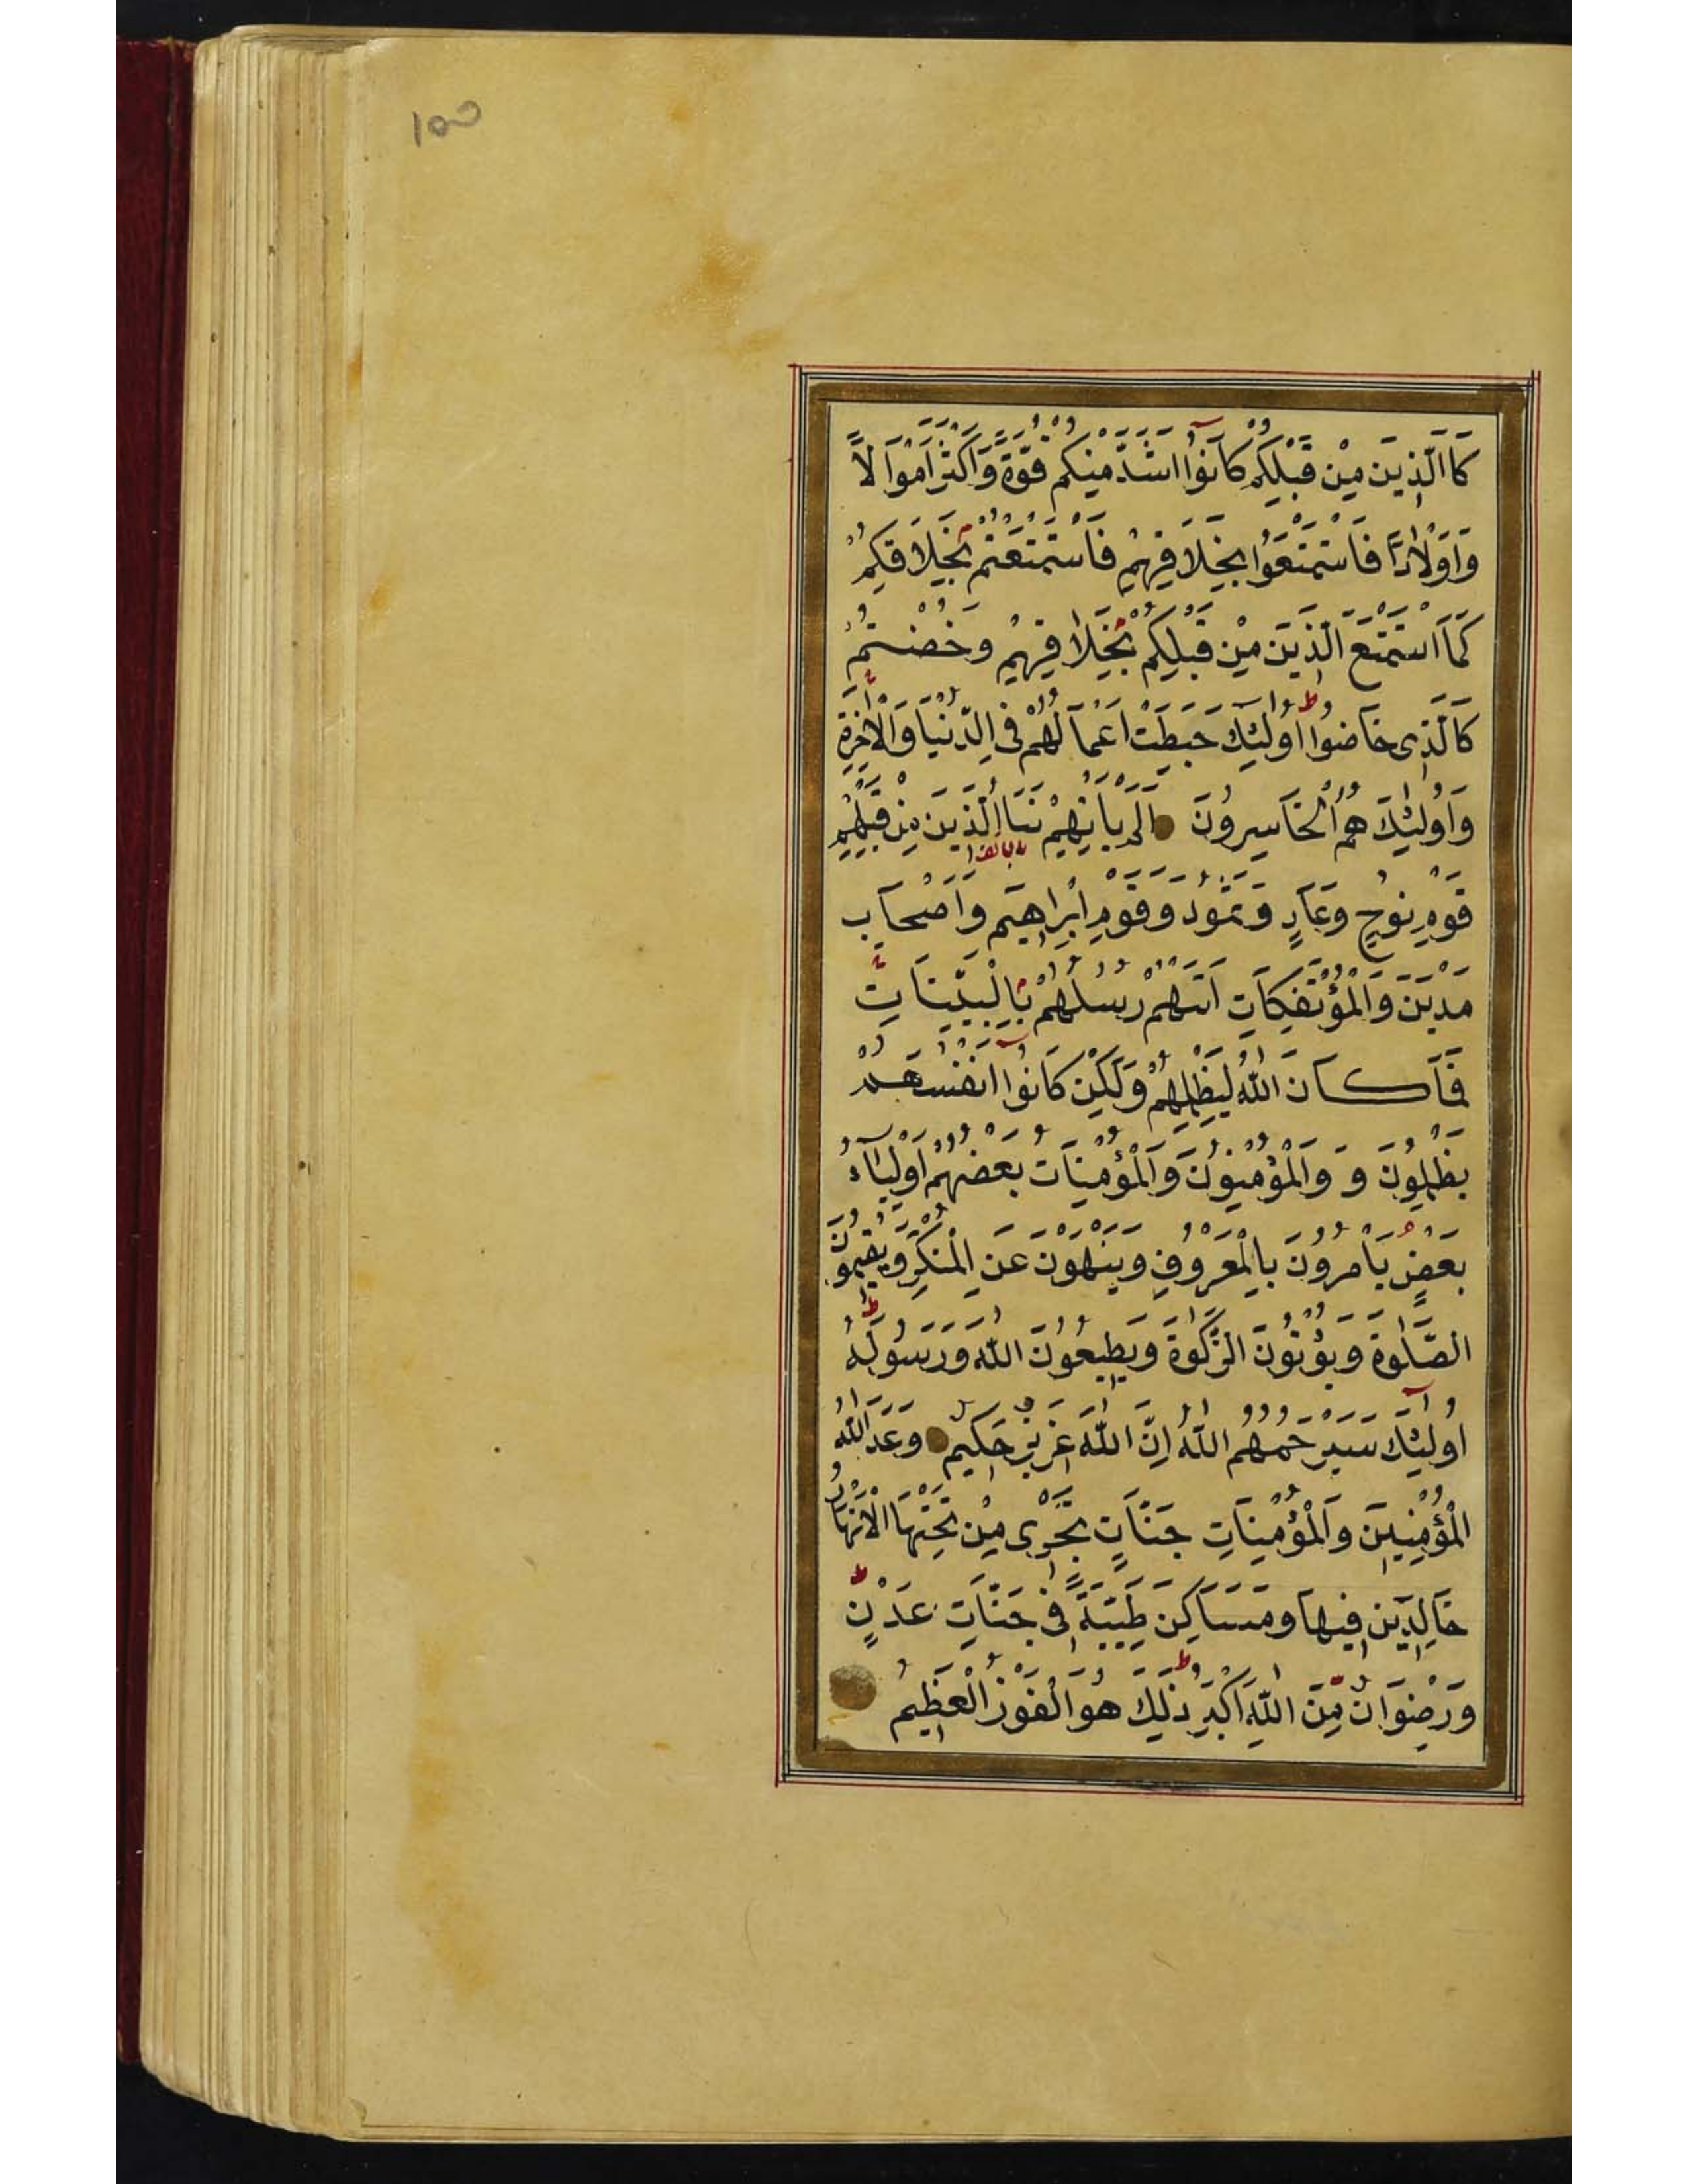 ١٥٥
كَاالَّذِينَ مِنْ قَبْلِكُمْ كَانُوا اَشَدَّ مِنْكُمْ قُوَّةً وَاَكْثَرَ اَمْوَالًا
وَاَوْلَادًا فَاسْتَمْتَعُوا بِخَلَاقِهِمْ فَاسْتَمْتَعْتُمْ بِخَلَاقِكُمْ
كَمَا اسْتَمْتَعَ الَّذِينَ مِنْ قَبْلِكُمْ بِخَلَاقِهِمْ وَخُضْتُمْ
كَالَّذِى خَاضُوا اُولٰئِكَ حَبِطَتْ اَعْمَالُهُمْ فِى الدُّنْيَا وَالْاٰخِرَةِ
وَاُولٰئِكَ هُمُ الْخَاسِرُونَ اَلَمْ يَاْتِهِمْ نَبَاُ الَّذِينَ مِنْ قَبْلِهِمْ
قَوْمِ نُوحٍ وَعَادٍ وَثَمُودَ وَقَوْمِ اِبْرٰاهِيمَ وَاَصْحَابِ
مَدْيَنَ وَالْمُؤْتَفِكَاتِ اَتَتْهُمْ رُسُلُهُمْ بِالْبَيِّنَاتِ
فَمَا كَانَ اللّٰهُ لِيَظْلِمَهُمْ وَلٰكِنْ كَانُوا اَنْفُسَهُمْ
يَظْلِمُونَ وَ وَالْمُؤْمِنُونَ وَالْمُؤْمِنَاتُ بَعْضُهُمْ اَوْلِيَآءُ
بَعْضٍ يَاْمُرُونَ بِالْمَعْرُوفِ وَيَنْهَوْنَ عَنِ الْمُنْكَرِ وَيُقِيمُونَ
الصَّلٰوةَ وَيُؤْتُونَ الزَّكٰوةَ وَيُطِيعُونَ اللّٰهَ وَرَسُولَهُ
اُولٰئِكَ سَيَرْحَمُهُمُ اللّٰهُ اِنَّ اللّٰهَ عَزِيزٌ حَكِيمٌ وَعَدَ اللّٰهُ
الْمُؤْمِنِينَ وَالْمُؤْمِنَاتِ جَنَّاتٍ تَجْرِى مِنْ تَحْتِهَا الْاَنْهَارُ
خَالِدِينَ فِيهَا وَمَسَاكِنَ طَيِّبَةً فِى جَنَّاتِ عَدْنٍ
وَرِضْوَانٌ مِنَ اللّٰهِ اَكْبَرُ ذٰلِكَ هُوَ الْفَوْزُ الْعَظِيمُ